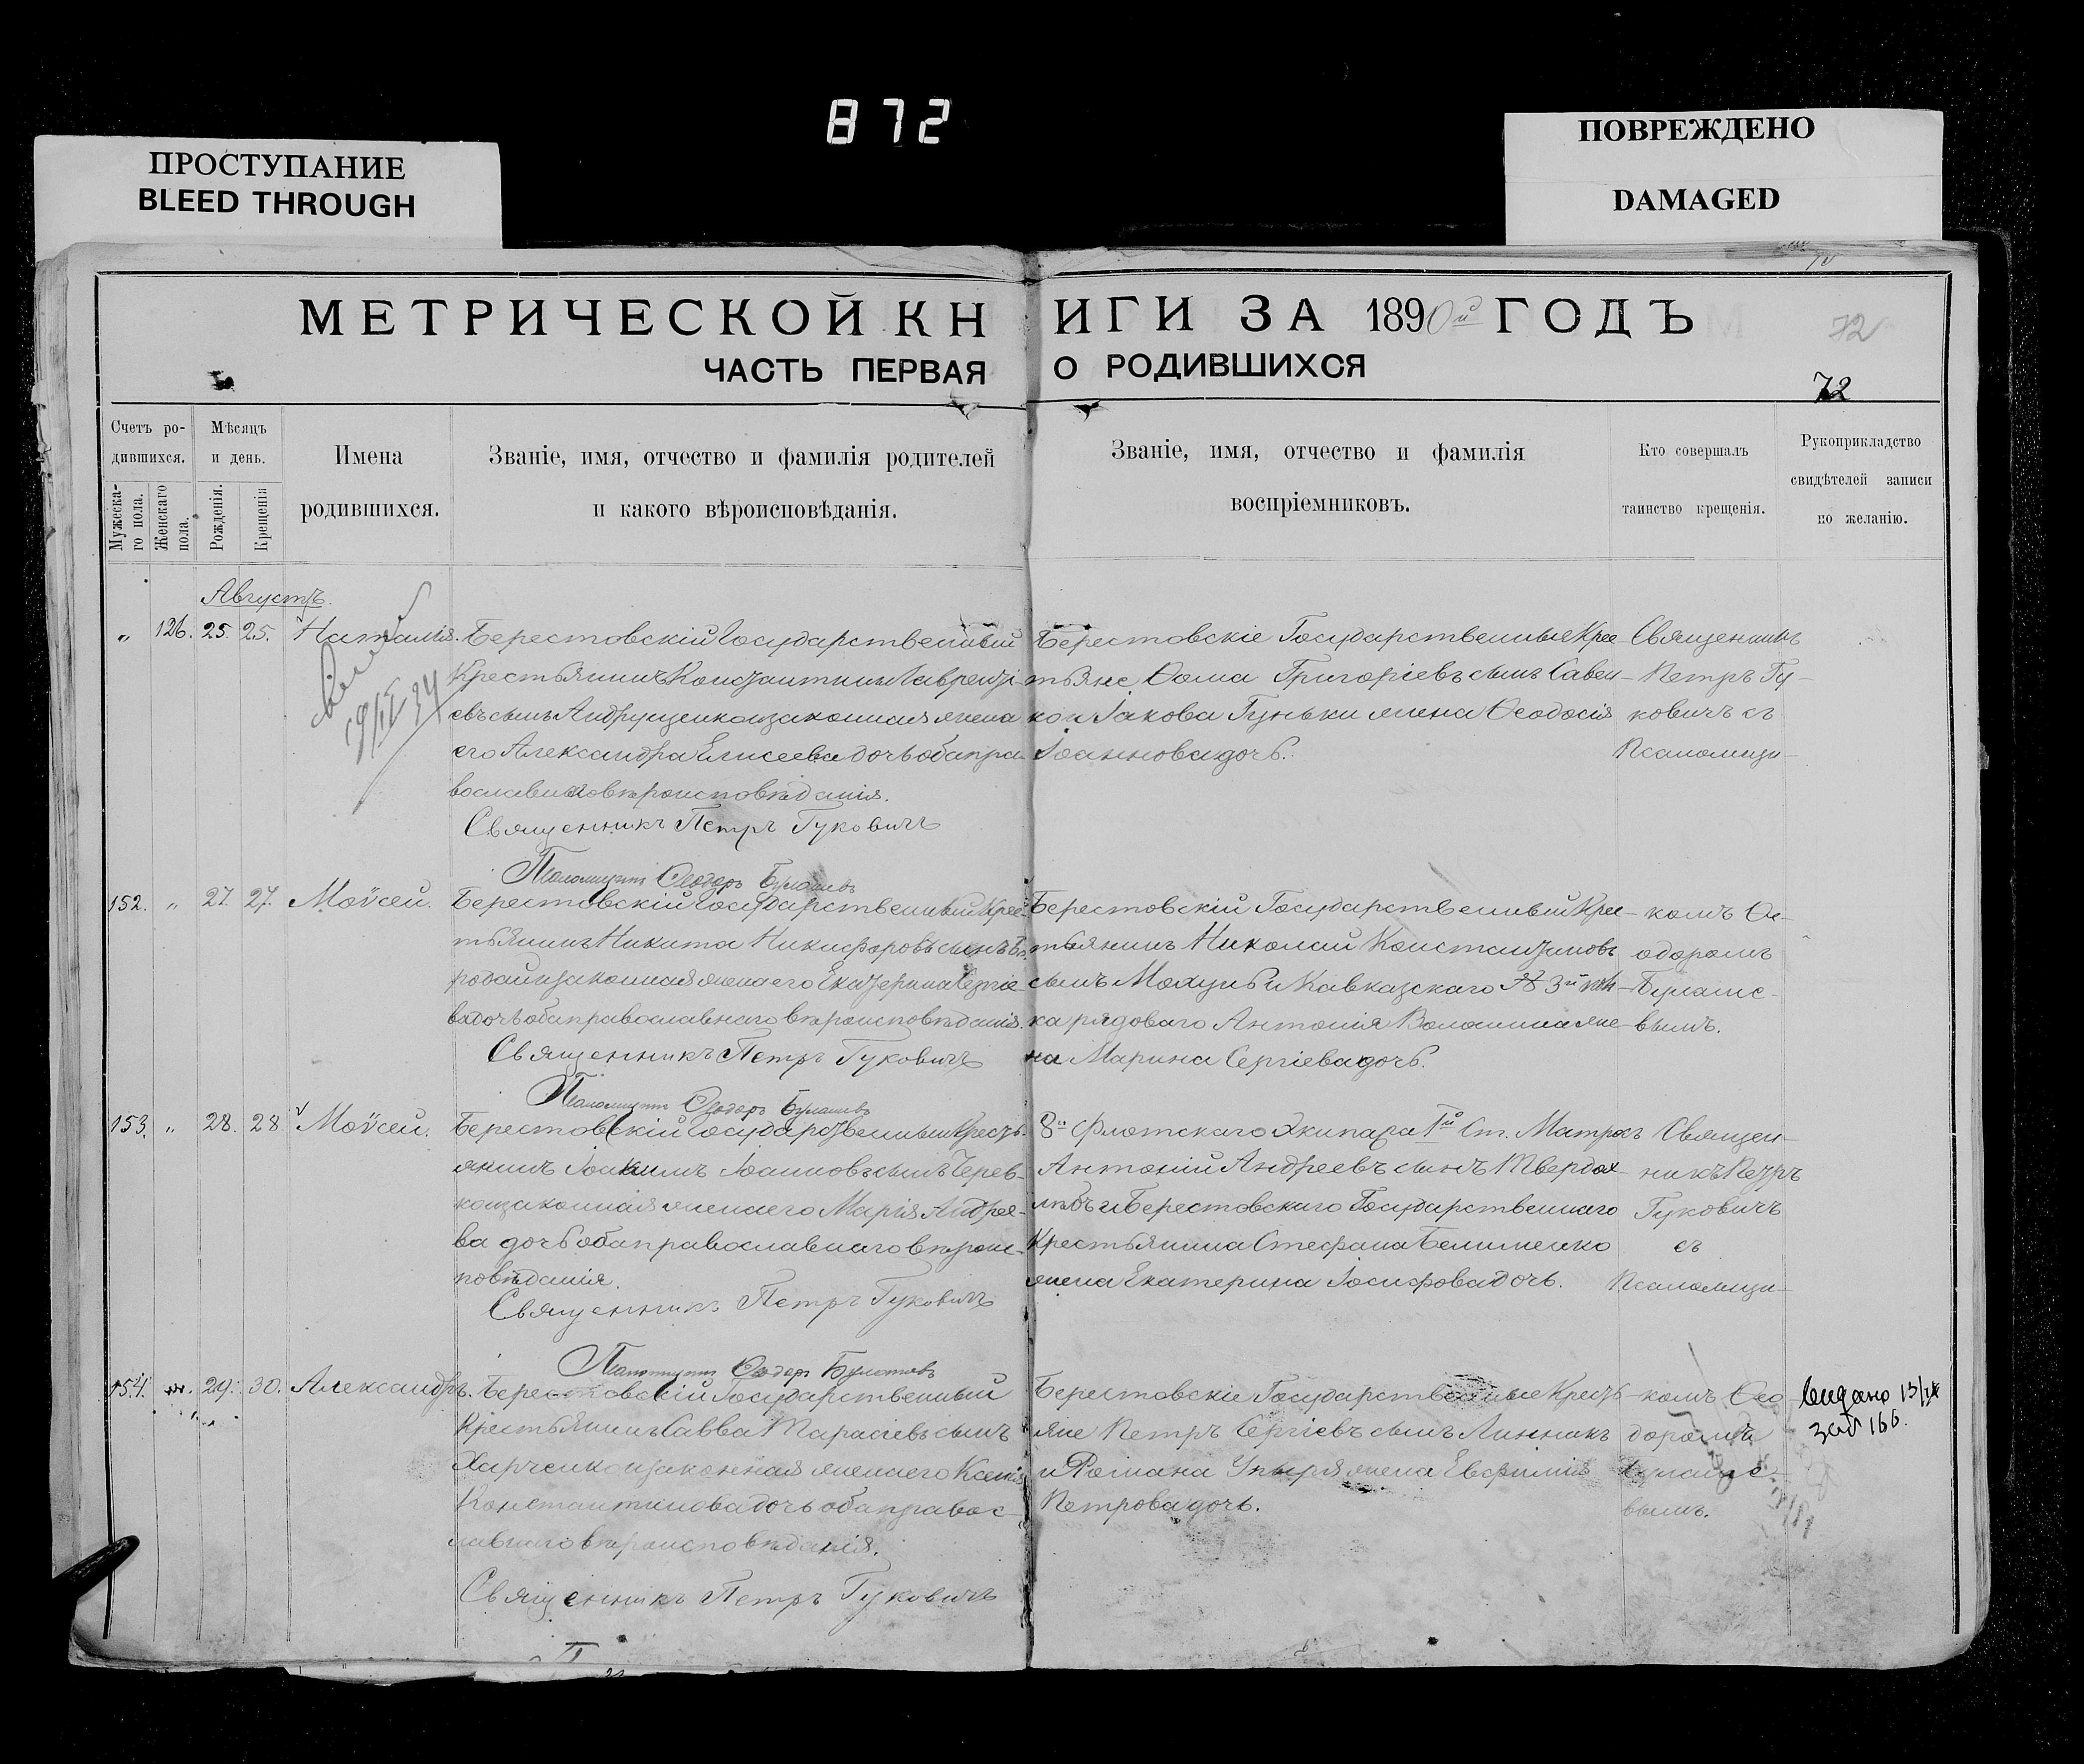 872
ПРОСТУПАНИЕ
BLEED THROUGH
ПОВРЕЖДЕНО
DAMAGED
МЕТРИЧЕСКОЙ КНИГИ ЗА 1890й ГОДЪ
ЧАСТЬ ПЕРВАЯ О РОДИВШИХСЯ
72
72
Счетъ ро-
дившихся.
Мужеска-
го пола.
Женскаго
пола.
Мѣсяцъ
и день.
Рожденія.
Крещенія
Имена
родившихся.
Званіе, имя, отчество и фамилія родителей
и какого вѣроисповѣданія.
Званіе, имя, отчество и фамилія
воспріемниковъ.
Кто совершалъ
таинство крещенія.
Рукоприкладство
свидѣтелей записи
по желанію.
Августъ.
„ 126. 25. 25. Наталія.
Берестовскій Государственный
Крестьянинъ Константинъ Лаврентi-
евъ сынъ Андрущенко и законная жена
его Александра Елисеева дочь оба пра-
вославнаго вѣроисповѣданія.
Священникъ Петръ Гуковичъ
Псаломщикъ Ѳеодоръ
Берестовскіе Государственные Крес-
тьяне Ѳома Григоріевъ сынъ Савен-
ко и Іакова Гуньки жена Ѳеодосія
Іоаннова дочь.
Священникъ
Петръ Гу-
ковичъ съ
Псаломщи-
152. „ 27. 27. Моѵсей.
Берестовскій Государственный Крес-
тьянинъ Никита Никифоровъ сынъ Бо-
родай и законная жена его Екатерина Сергіе-
ва дочь оба православнаго вѣроисповѣданія.
Священникъ Петръ Гуковичъ
Псаломщикъ Ѳеодоръ
Берестовскій Государственный Крес-
тьянинъ Николай Константиновъ
сынъ и Кавказскаго
ка рядоваго Антонія Волошина же-
на Марина Сергіева дочь.
комъ Ѳе-
одоромъ
вымъ.
153. „ 28. 28 Моѵсей.
Берестовскій Государственный Кресть-
янинъ Іоакимъ Іоанновъ сынъ Черев-
ко и законная жена его Марія Андрее-
ва дочь оба православнаго вѣроис-
повѣданія.
Священникъ Петръ Гуковичъ
Псаломщикъ Ѳеодоръ
8го Флотскаго Экипажа 1й Ст. Матросъ
Антоній Андреевъ сынъ Твердох-
лѣбъ и Берестовскаго Государственнаго
Крестьянина Стефана Белименко
жена Екатерина Іосифова дочь.
Священ-
никъ Петръ
Гуковичъ
съ
Псаломщи-
154. „ 29. 30. Александръ.
Берестовскій Государственный
Крестьянинъ Савва Тарасіевъ сынъ
Харченко и законная жена его Ксенія
Константинова дочь оба правос-
лавнаго вѣроисповѣданія.
Священникъ Петръ Гуковичъ
Берестовскіе Государственные Кресть-
яне Петръ Сергіевъ сынъ Линникъ
и Романа Упыря жена Евфимія
Петрова дочь.
комъ Ѳео-
доромъ
вымъ.
видано 13/IX
за № 166.